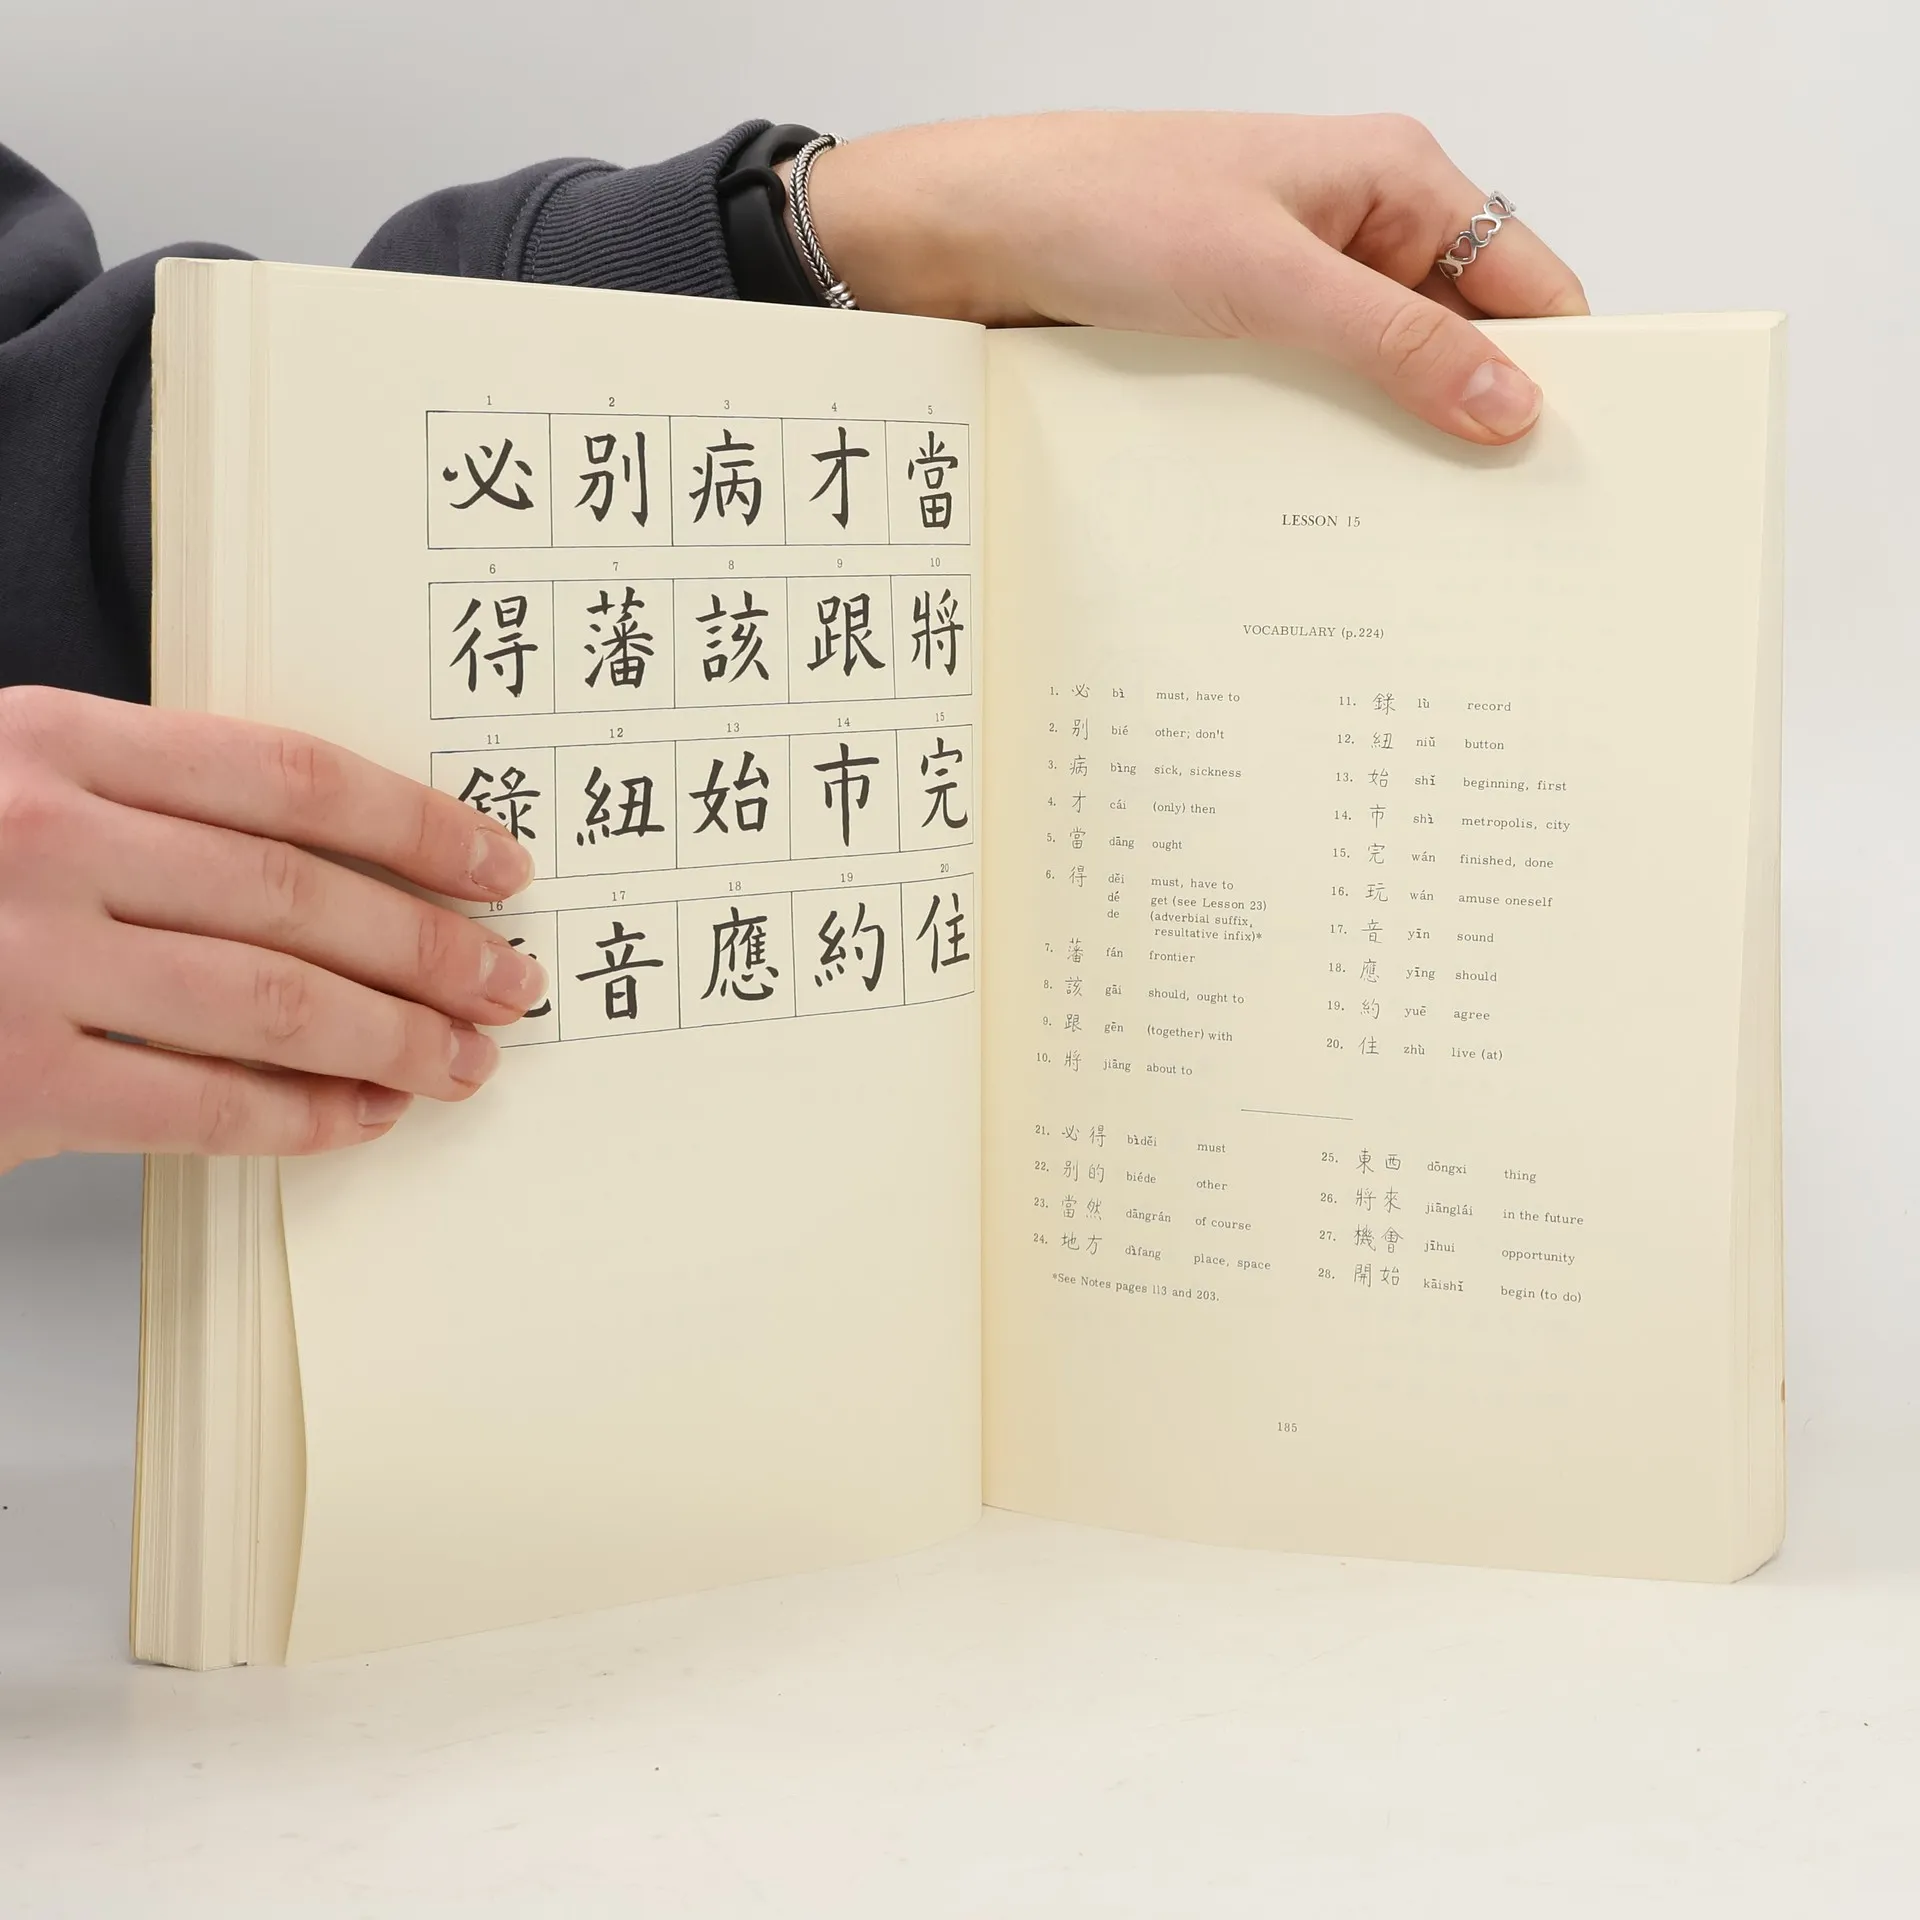 1 2 3 4 5
必 別 病 才 當
6 7 8 9 10
得 藩 該 跟 將
11 12 13 14 15
錄 紐 始 市 完
16 17 18 19 20
音 應 約 住
LESSON 15
VOCABULARY (p.224)
1. 必 bì must, have to
2. 別 bié other; don't
3. 病 bìng sick, sickness
4. 才 cái (only) then
5. 當 dāng ought
6. 得 děi must, have to
dé get (see Lesson 23)
de (adverbial suffix,
resultative infix)*
7. 藩 fán frontier
8. 該 gāi should, ought to
9. 跟 gēn (together) with
10. 將 jiāng about to
11. 錄 lù record
12. 紐 niŭ button
13. 始 shĭ beginning, first
14. 市 shì metropolis, city
15. 完 wán finished, done
16. 玩 wán amuse oneself
17. 音 yīn sound
18. 應 yīng should
19. 約 yuē agree
20. 住 zhù live (at)
21. 必得 bìděi must
22. 別的 biéde other
23. 當然 dāngrán of course
24. 地方 dìfang place, space
25. 東西 dōngxi thing
26. 將來 jiānglái in the future
27. 機會 jīhui opportunity
28. 開始 kāishĭ begin (to do)
*See Notes pages 113 and 203.
185